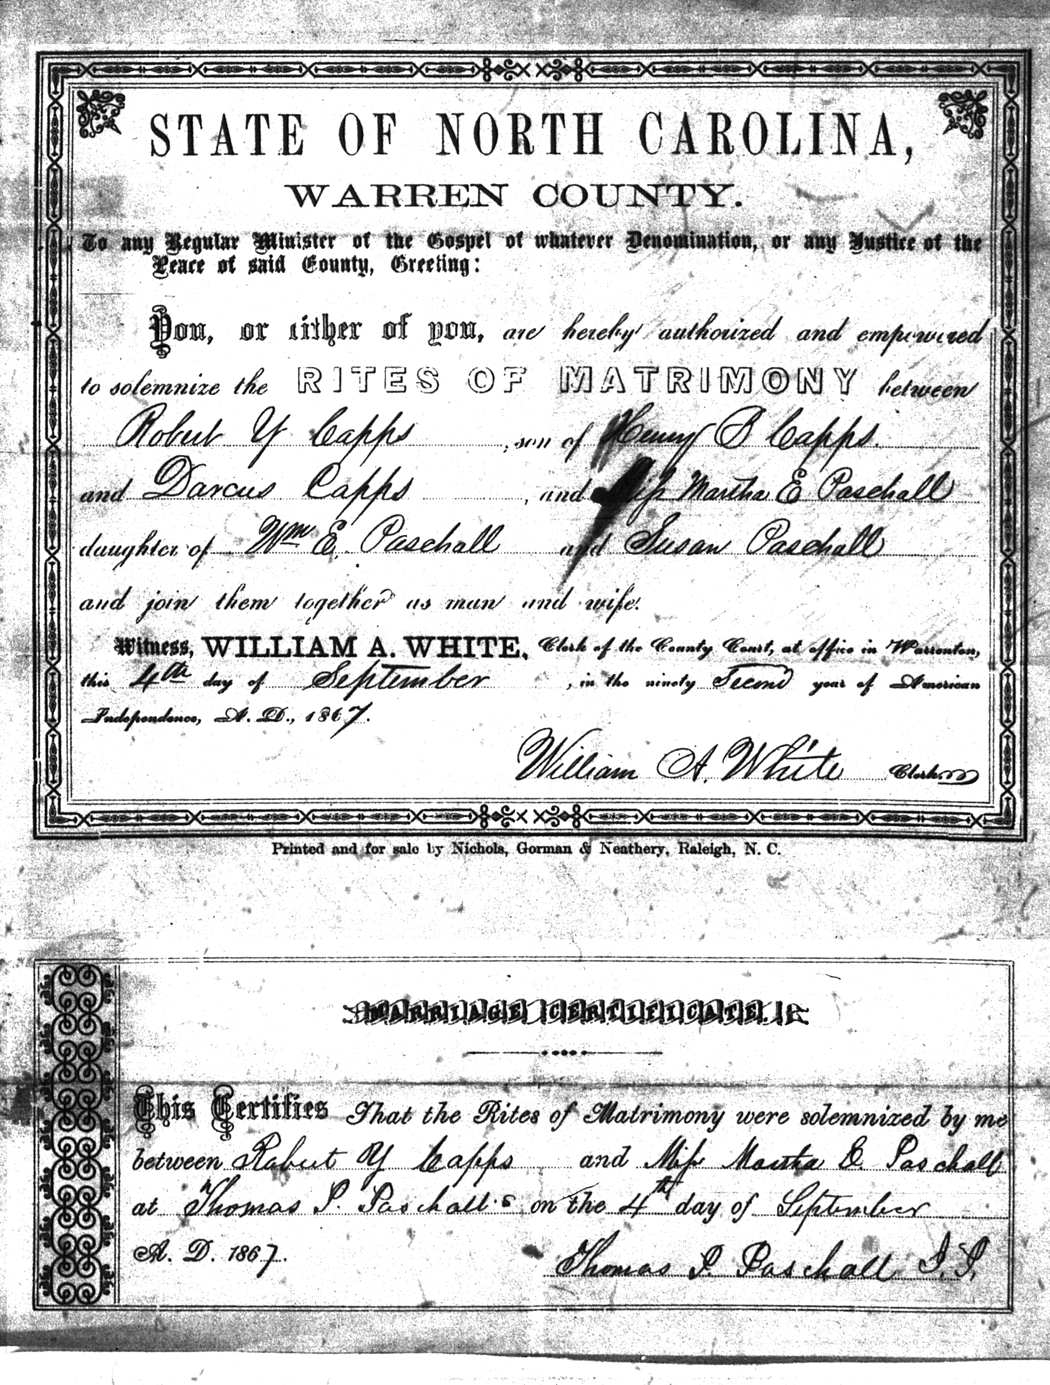 STATE OF NORTH CAROLINA,
WARREN COUNTY.
To any Regular Minister of the Gospel of whatever Denomination, or any Justice of the
Peace of said County, Greeting:
You, or either of you, are hereby authorized and empowered
to solemnize the RITES OF MATRIMONY between
Robert Y Capps, son of Henry B Capps.
and Darcus Capps, and Miss Martha E Paschall
daughter of Wm E. Paschall and Susan Paschall
and join them together as man and wife.
Witness, WILLIAM A. WHITE, Clerk of the County Court, at office in Warrenton,
this 4th day of September, in the ninety Second year of American
Independence, A. D., 1867.
William A. White Clerk
Printed and for sale by Nichols, Gorman & Neathery, Raleigh, N. C.
MARRIAGE CERTIFICATE.
This Certifies That the Rites of Matrimony were solemnized by me
between Robert Y Capps and Miss Martha E Paschall
at Thomas P. Paschall's on the 4th day of September
A. D. 1867.
Thomas P. Paschall J. P.